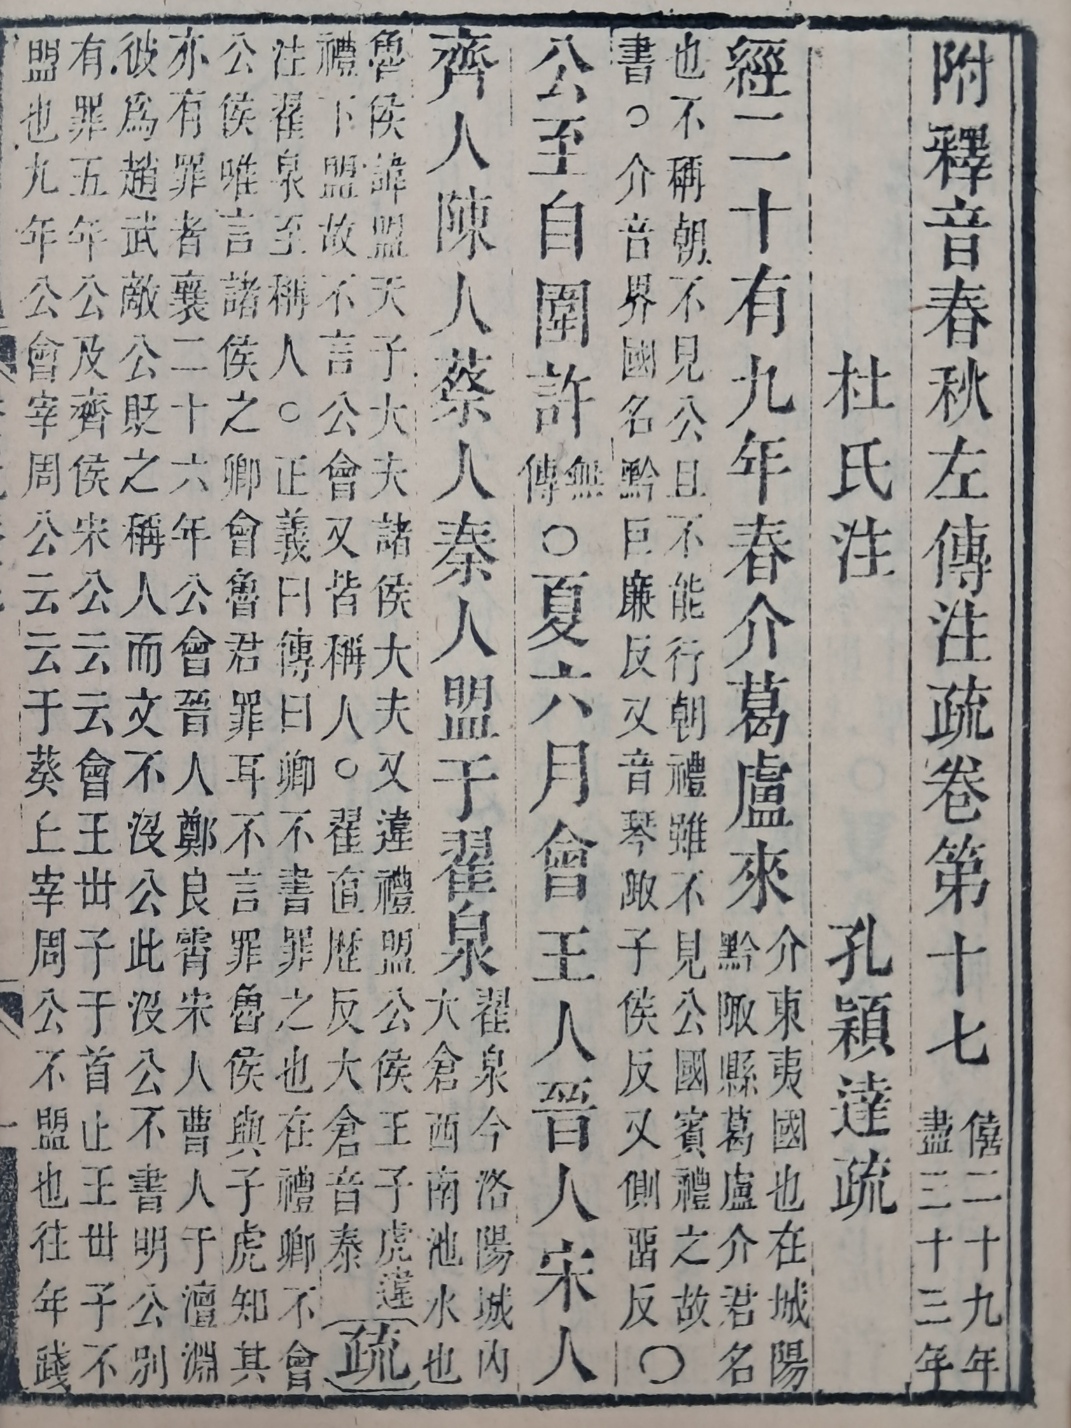 附釋音春秋左傳注疏卷第十七
僖二十九年
盡三十三年
杜氏注 孔穎達疏
經二十有九年春介葛盧來
介東夷國也在城陽
黔陬縣葛盧介君名
也不稱朝不見公且不能行朝禮雖不見公國賓禮之故
書○介音界國名黔巨廉反又音琴陬子侯反又側留反
○
公至自圍許
無
傳
○夏六月會王人晉人宋人
齊人陳人蔡人秦人盟于翟泉
翟泉今洛陽城內
大倉西南池水也
魯侯諱盟天子大夫諸侯大夫又違禮盟公侯王子虎違
禮下盟故不言公會又皆稱人○翟直歷反大倉音泰
疏
注翟泉至稱人○正義曰傳曰卿不書罪之也在禮卿不會
公侯唯言諸侯之卿會魯君罪耳不言罪魯侯與子虎知其
亦有罪者襄二十六年公會晉人鄭良霄宋人曹人于澶淵
彼爲趙武敵公貶之稱人而文不沒公此沒公不書明公別
有罪五年公及齊侯宋公云云會王世子于首止王世子不
盟也九年公會宰周公云云于葵丘宰周公不盟也往年踐